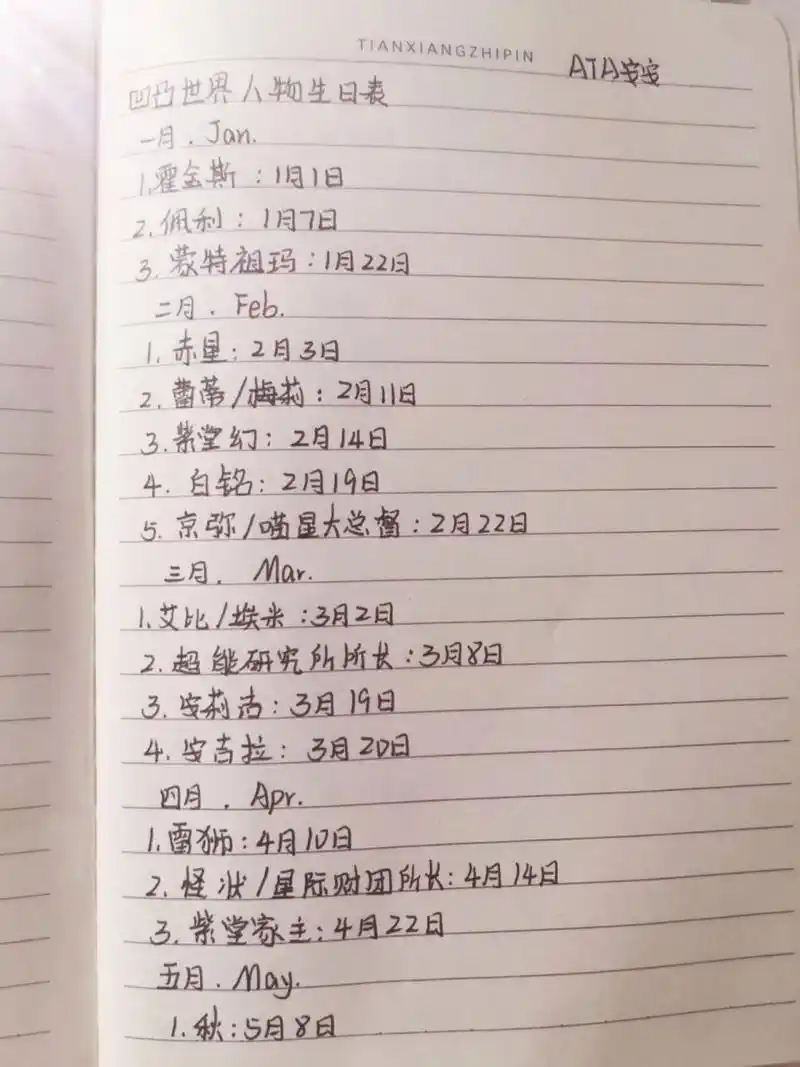 TIANXIANGZHIPIN
ATA安安
凹凸世界人物生日表
一月. Jan.
1.霍金斯：1月1日
2.佩利：1月7日
3.蒙特祖玛：1月22日
二月. Feb.
1.赤星：2月3日
2.蕾蒂/梅莉：2月11日
3.紫堂幻：2月14日
4.白铭：2月19日
5.京弥/喵星大总督：2月22日
三月. Mar.
1.艾比/埃米：3月2日
2.超能研究所所长：3月8日
3.安莉洁：3月19日
4.安吉拉：3月20日
四月. Apr.
1.雷狮：4月10日
2.怪状/星际财团所长：4月14日
3.紫堂家主：4月22日
五月. May.
1.秋：5月8日